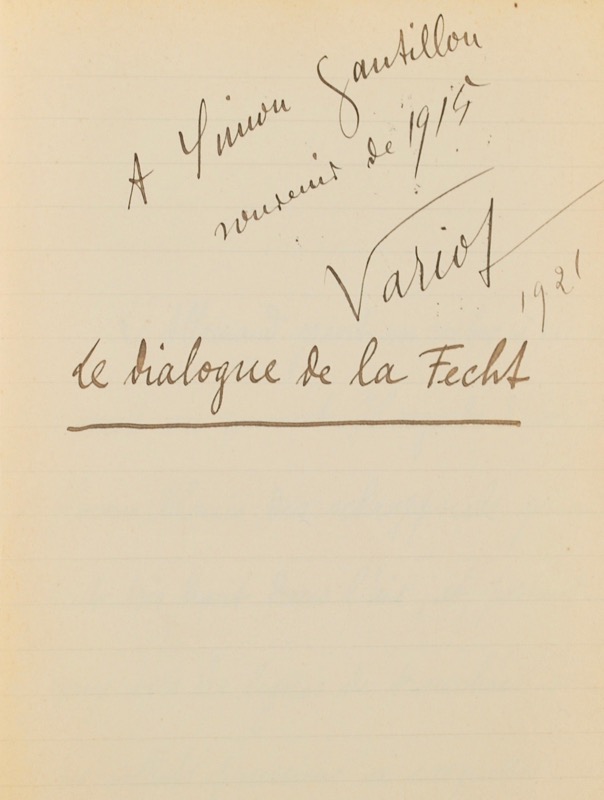 A Simon Gantillon
souvenir de 1915
Variot
1921
Le dialogue de la Fecht